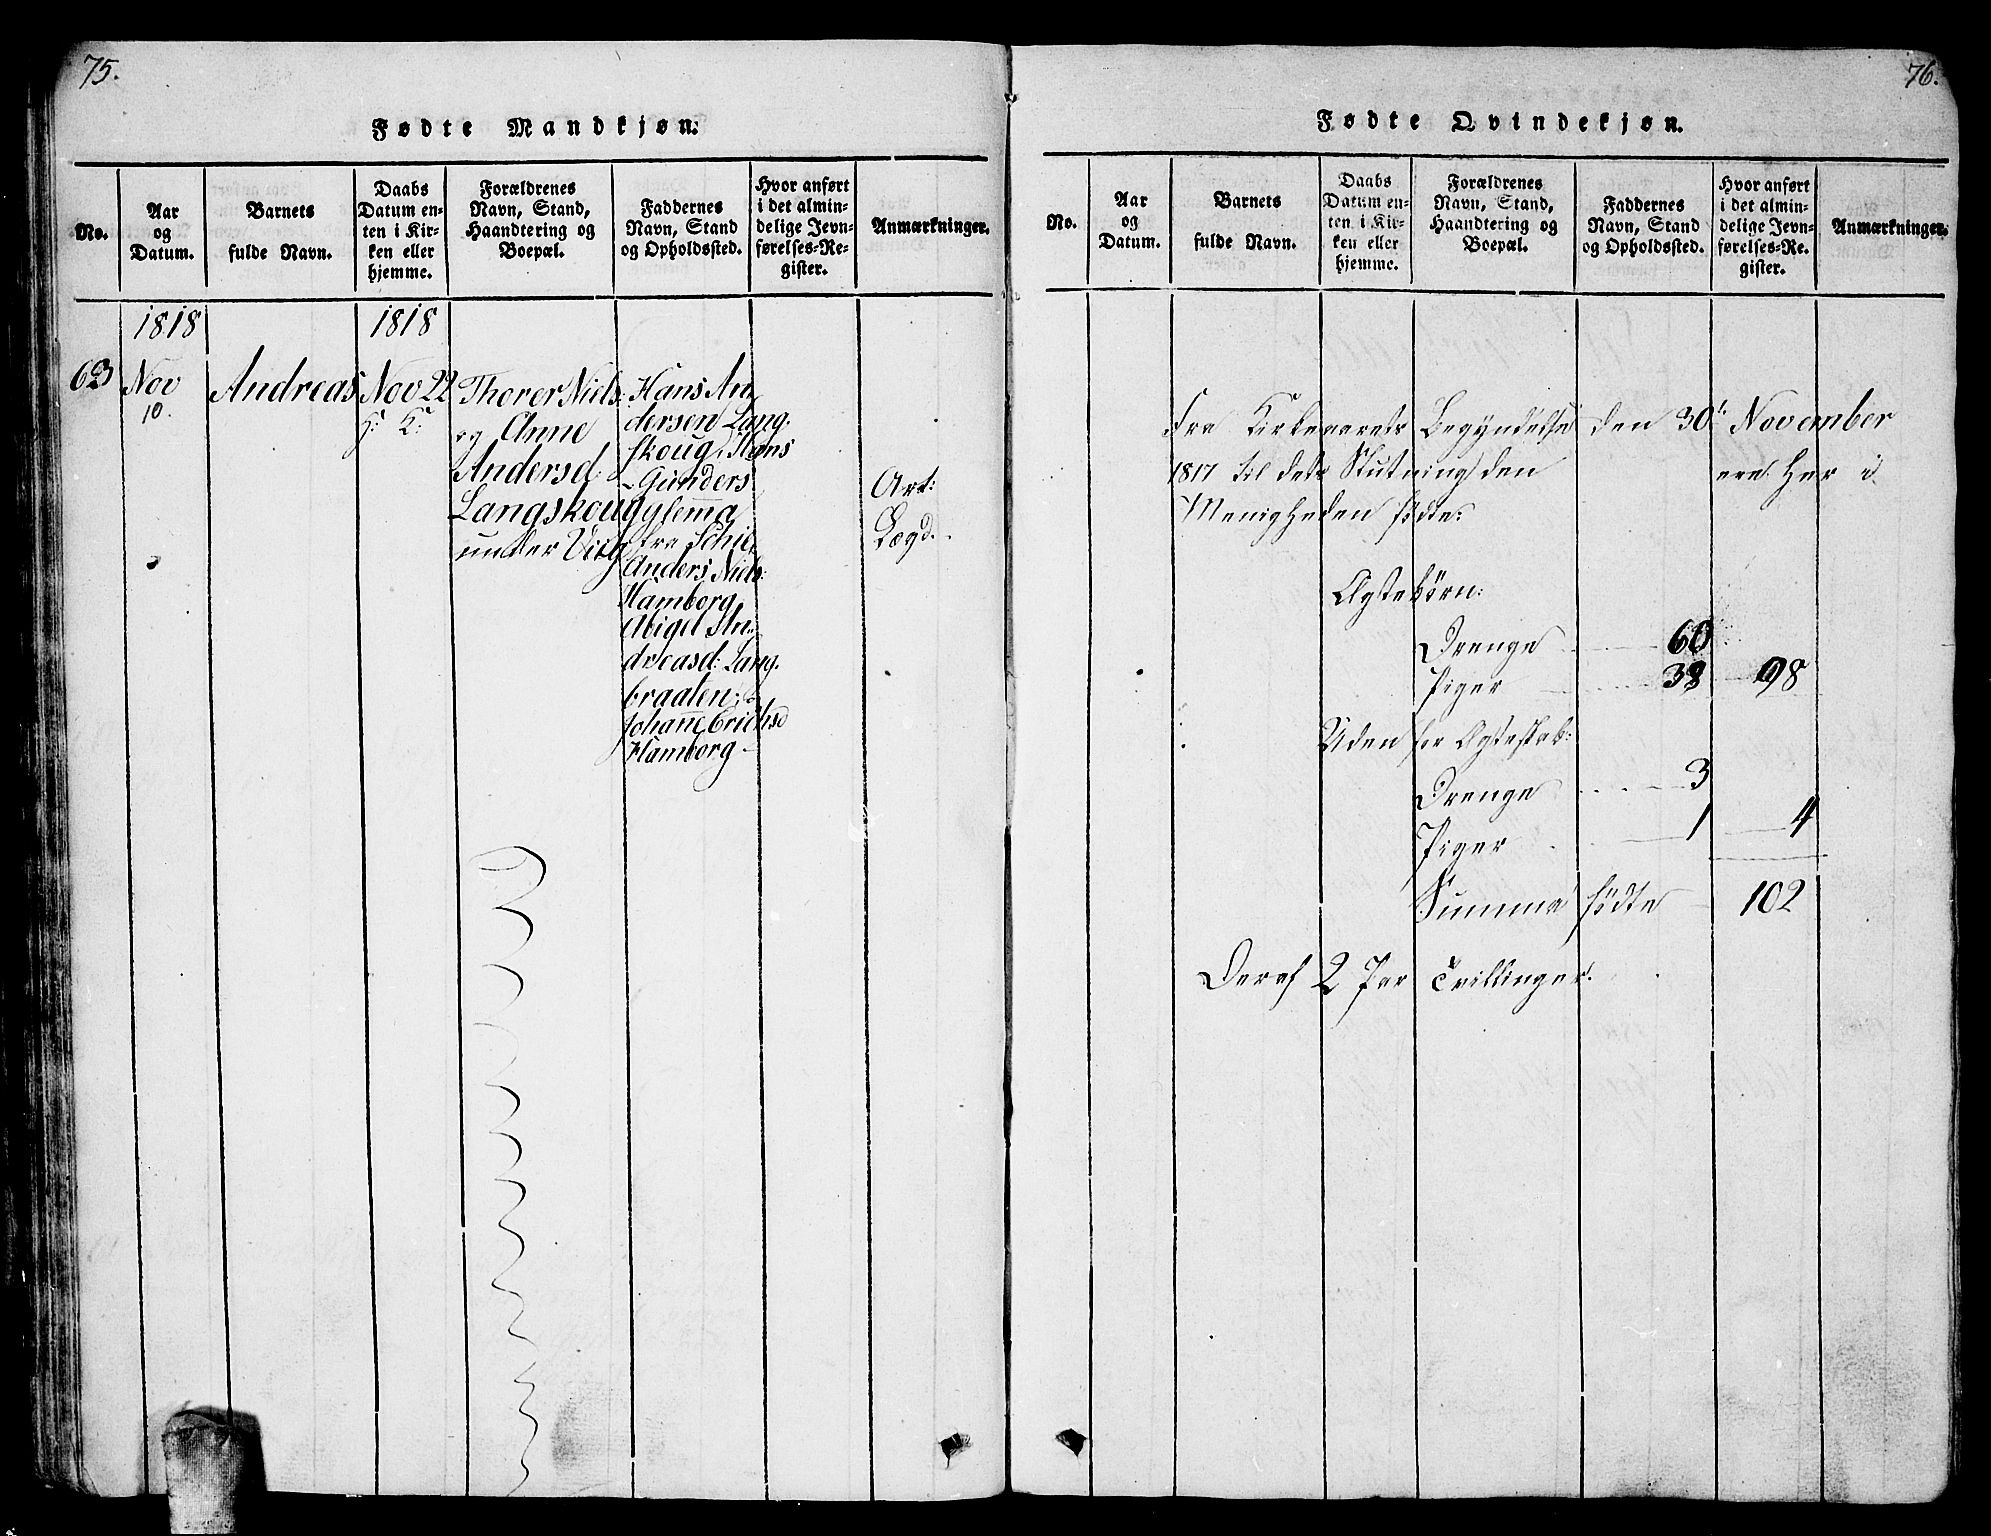 75.
Fødte Mandkjøn.
No.
Aar
og
Datum.
Barnets
fulde Navn.
Daabs
Datum en-
ten i Kir-
ken eller
hjemme.
Forældrenes
Navn, Stand,
Haandtering og
Boepæl.
Faddernes
Navn, Stand
og Opholdssted.
Hvor anført
i det almin-
delige Jevn-
førelses-Re-
gister.
Anmærkninger.
1818
1818
63
Nov
10.
Andreas
Nov 22
H: K:
Thorer Niels:
og Anne
Andersd:
Langskoug
under
Hans An
dersen Lang.
skoug, Hans
Gunders
fra
Anders Niels:
Hamborg,
Abigel An-
dreasd: Lang.
braaten;
Johanne Erichsd
Hamborg
Art:
Lægd.
76.
Fødte Qvindekjøn.
No.
Aar
og
Datum.
Barnets
fulde Navn.
Daabs
Datum en-
ten i Kir-
ken eller
hjemme.
Forældrenes
Navn, Stand,
Haandtering og
Boepæl.
Faddernes
Navn, Stand
og Opholdssted.
Hvor anført
i det almin-
delige Jevn-
førelses-Re-
gister.
Anmærkninger.
Fra Kirkeaarets Begyndelse den 30t November
1817 til dets Slutning den ere her i
Menigheden fødte:
Ægtebørn:
Drenge 60
Piger 38 98
Uden for Ægteskab:
Drenge 3
Piger 1 4
Summa fødte 102
Deraf 2 Par Tvillinger.